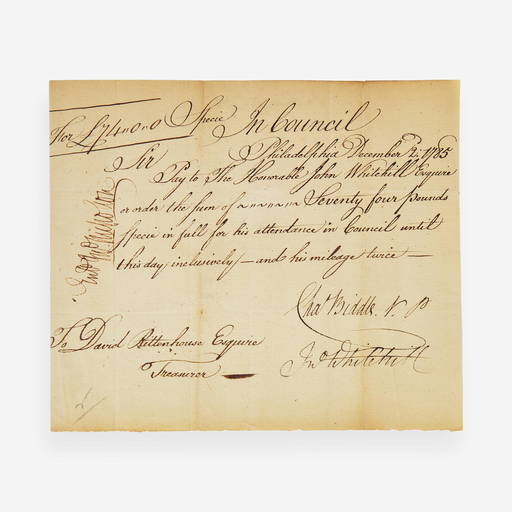 For £74. 0. 0 Specie In Council
Philadelphia December 2. 1785
Sir
Pay to The Honorable John Whitehill Esquire
or order the sum of Seventy four Pounds
specie in full for his attendance in Council until
this day, inclusively — and his mileage twice —
Chas Biddle V. P
To David Rittenhouse Esquire
Treasurer
Jno Whitehill